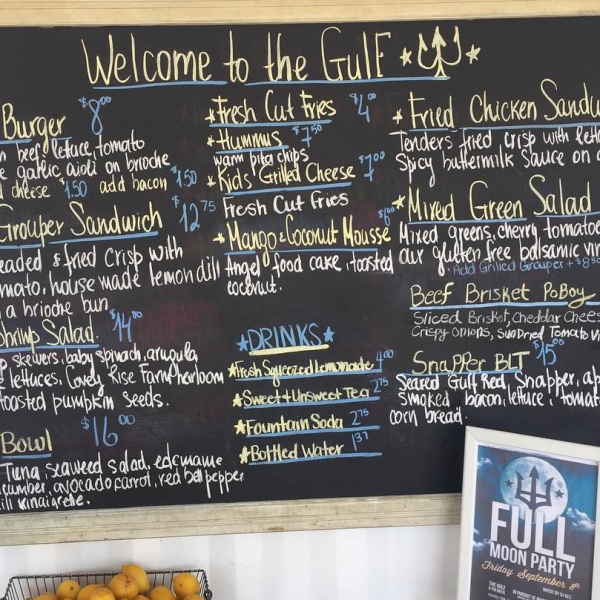 Welcome to the Gulf
Burger $8.00
beef, lettuce, tomato
garlic aioli on brioche
cheese $1.50 add bacon $1.50
Grouper Sandwich $12.75
& fried crisp with
house made lemon dill
a brioche bun
Shrimp Salad $14.00
skewers, baby spinach, arugula,
lettuces, Covey Rise Farm heirloom
toasted pumpkin seeds.
Bowl $16.00
Tuna, seaweed salad, edamame
avocado, carrot, red bell pepper
Fresh Cut Fries $4.00
Hummus $7.50
warm pita chips
Kids Grilled Cheese $7.00
Fresh Cut Fries
Mango & Coconut Mousse
Angel food cake, toasted
coconut.
DRINKS
Fresh Squeezed Lemonade 4.00
Sweet & Unsweet Tea 2.75
Fountain Soda 2.75
Bottled Water 1.37
Fried Chicken
Tenders fried crisp with
Spicy buttermilk sauce on
Mixed Green Salad
Mixed greens, cherry
our gluten free balsamic
Add Grilled Grouper +
Beef Brisket PoBoy
Sliced Brisket, Cheddar
Crispy Onions, Sundried Tomato
Snapper BLT $15.00
Seared Gulf Red Snapper,
smoked bacon, lettuce,
corn bread
FULL
MOON PARTY
Friday September 8th